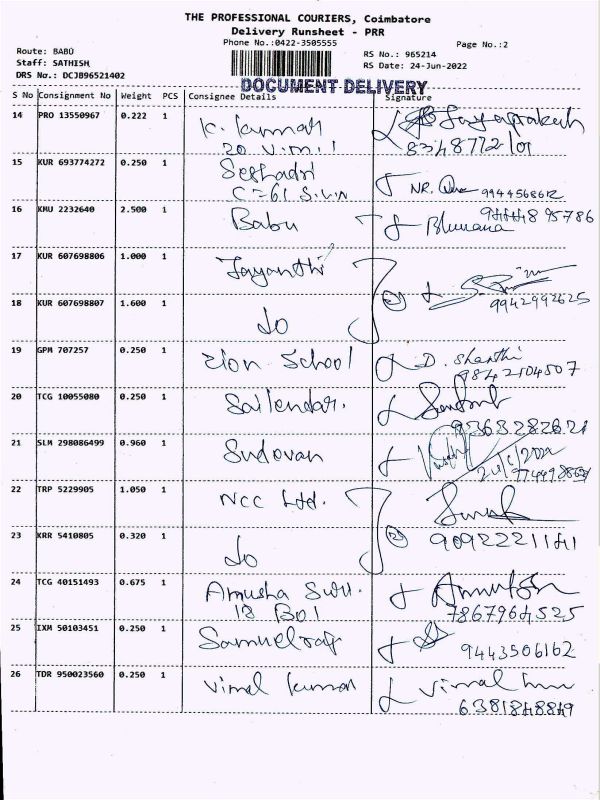 THE PROFESSIONAL COURIERS, Coimbatore
Delivery Runsheet - PRR
Phone No.:0422-3505555
Page No.:2
Route: BABU
Staff: SATHISH
DRS No.: DCJB96521402
RS No.: 965214
RS Date: 24-Jun-2022
DOCUMENT DELIVERY
S No Consignment No Weight PCS Consignee Details Signature
14 PRO 13550967 0.222 1 K. Kumar
15 KUR 693774272 0.250 1 Seshadri
C-61 9944568612
16 KMU 2232640 2.500 1 Babu Bhuvana 9444895786
17 KUR 607698806 1.000 1 Jayanthi
18 KUR 607698807 1.600 1 do 2 9942992625
19 GPM 707257 0.250 1 Elon School D. Shanthi
9842104507
20 TCG 10055080 0.250 1 Sailendar.
9363282621
21 SLM 298086499 0.960 1 Sudovan
22 TRP 5229905 1.050 1 NCC Ltd.
23 KRR 5410805 0.320 1 do 2 9092221141
24 TCG 40151493 0.675 1 Anusha
18 B01 7867964525
25 IXM 50103451 0.250 1 Samuelraj
9443506162
26 TDR 950023560 0.250 1 Vimal Kumar Vimal
6381848849